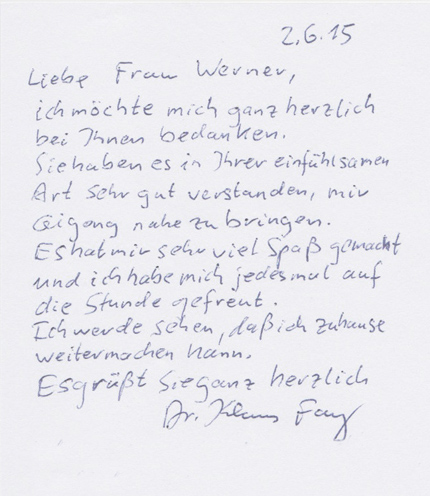 2.6.15
Liebe Frau Werner,
ich möchte mich ganz herzlich
bei Ihnen bedanken.
Sie haben es in Ihrer einfühlsamen
Art sehr gut verstanden, mir
Qigong nahe zu bringen.
Es hat mir sehr viel Spaß gemacht
und ich habe mich jedesmal auf
die Stunde gefreut.
Ich werde sehen, daß ich zuhause
weitermachen kann.
Es grüßt Sie ganz herzlich
Dr. Klaus